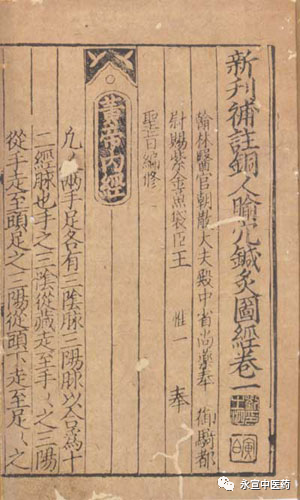 新刊補註銅人腧穴鍼灸圖經卷一
翰林醫官朝散大夫殿中省尚藥奉御騎都
尉賜紫金魚袋臣王惟一奉
聖旨編修
黄帝内經
凡人兩手足各有三陰脉三陽脉以合爲十
二經脉也手之三陰從藏走至手手之三陽
從手走至頭足之三陽從頭下走至足足之
永宣中医药